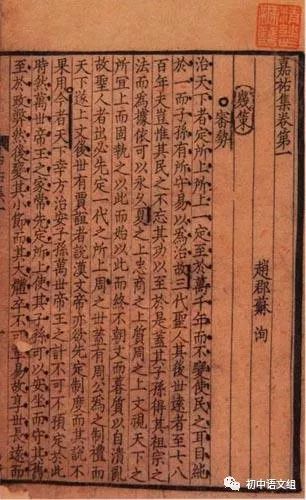 嘉祐集卷第一
趙郡蘇洵
幾策
審勢
治天下者定所上所上一定至於萬千年而不變使民之耳目純
於一而子孫有所守易以為治故三代聖人其後世遠者至七八
百年夫豈惟其民之不忘其功以至於是蓋其子孫得其祖宗之
法而為據依可以永久夏之上忠商之上質周之上文視天下之
所宜上而固執之以此而始以此而終不朝文而暮質以自潰亂
故聖人者出必先定一代之所上周之世蓋有周公為之制禮而
天下遂上文後世有賈誼者說漢文帝亦欲先定制度而其說不
果用今者天幸方治安子孫萬世帝王之計不可不預定於此
時然萬世帝王之計常先定所上使其子孫可以安坐而守其舊
至於政弊然後變其小節而其大體卒不可革易故享世長遠而
初中语文组